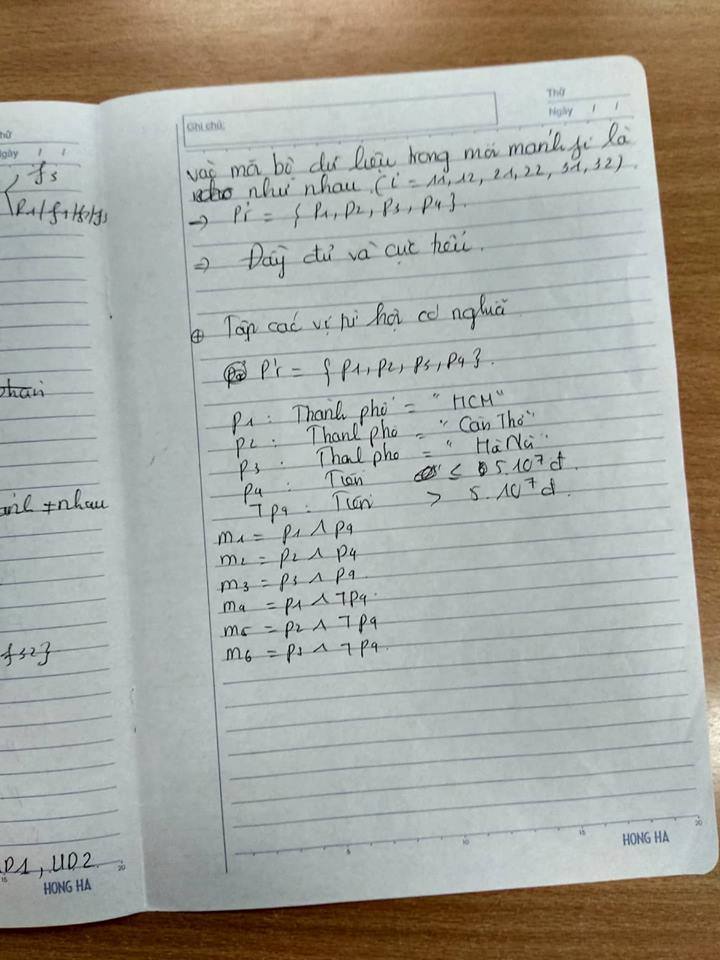 hữ
gày / /
f3
R1/f1/f2/f3
phân
ảnh ≠ nhau
f32}
D1, UD2
15 20
HONG HA
Ghi chú:
Thứ
Ngày / /
vào mã bộ dữ liệu trong mỗi mảnh fi là
như nhau. (i = 11, 12, 21, 22, 31, 32)
→ Pr' = { P1, P2, P3, P4 }.
⇒ Đầy đủ và cực tiểu.
⊕ Tập các vị từ hội cơ nghĩa
Pr' = { P1, P2, P3, P4 }.
P1 : Thành phố = "HCM"
P2 : Thành phố = "Cần Thơ"
P3 : Thành phố = "Hà Nội"
P4 : Tiền ≤ 5.10⁷đ
⌐P4 : Tiền > 5.10⁷đ.
m1 = P1 ∧ P4
m2 = P2 ∧ P4
m3 = P3 ∧ P4
m4 = P1 ∧ ⌐P4
m5 = P2 ∧ ⌐P4
m6 = P3 ∧ ⌐P4
5 10 15 20
HONG HA